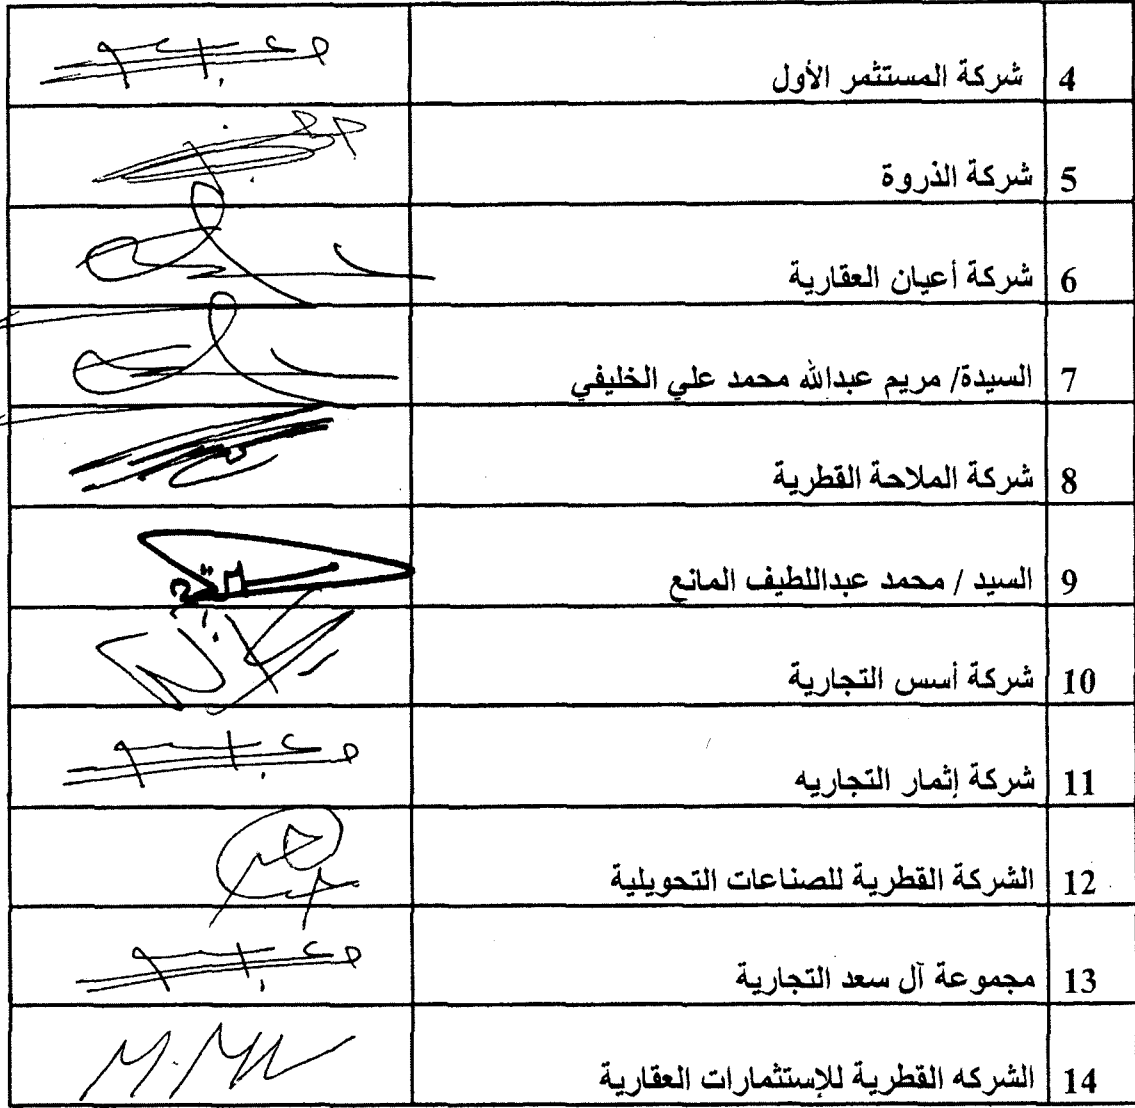 4 شركة المستثمر الأول
5 شركة الذروة
6 شركة أعيان العقارية
7 السيدة/ مريم عبدالله محمد علي الخليفي
8 شركة الملاحة القطرية
9 السيد / محمد عبداللطيف المانع
10 شركة أسس التجارية
11 شركة إثمار التجاريه
12 الشركة القطرية للصناعات التحويلية
13 مجموعة آل سعد التجارية
14 الشركه القطرية للإستثمارات العقارية